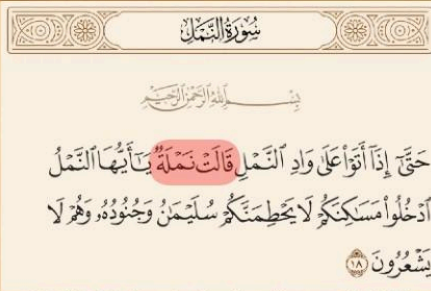 سُورَةُ النَّمْلِ
بِسْمِ اللَّهِ الرَّحْمَٰنِ الرَّحِيمِ
حَتَّىٰٓ إِذَآ أَتَوْا۟ عَلَىٰ وَادِ ٱلنَّمْلِ قَالَتْ نَمْلَةٌ يَـٰٓأَيُّهَا ٱلنَّمْلُ
ٱدْخُلُوا۟ مَسَـٰكِنَكُمْ لَا يَحْطِمَنَّكُمْ سُلَيْمَـٰنُ وَجُنُودُهُۥ وَهُمْ لَا
يَشْعُرُونَ ١٨